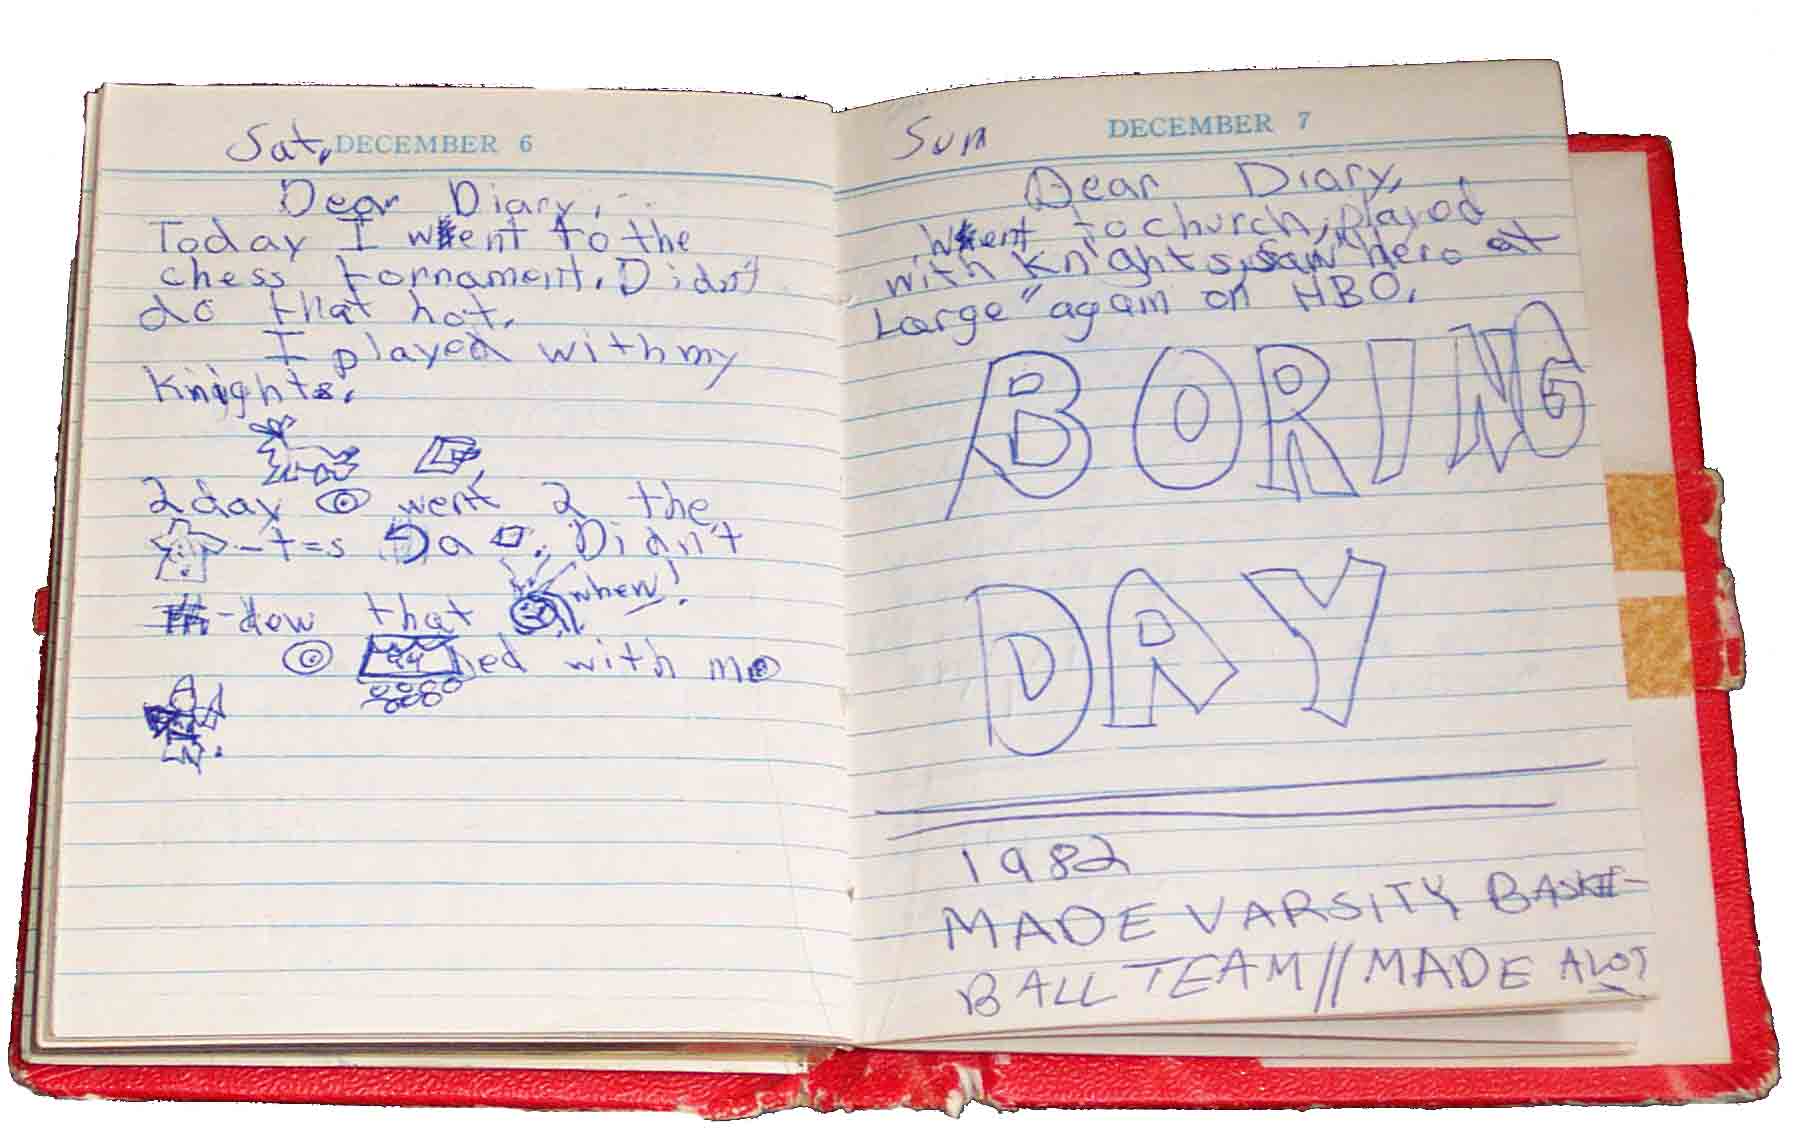 Sat, DECEMBER 6
Dear Diary,
Today I went to the
chess tornament. Didn't
do that hot.
I played with my
Knights.
2day went 2 the
-t=s a Didn't
-dow that whew!
hed with m
Sun DECEMBER 7
Dear Diary,
Went to church, played
with Knights, saw "hero at
Large" again on HBO.
BORING
DAY
1982
MADE VARSITY BASKET-
BALL TEAM // MADE A LOT